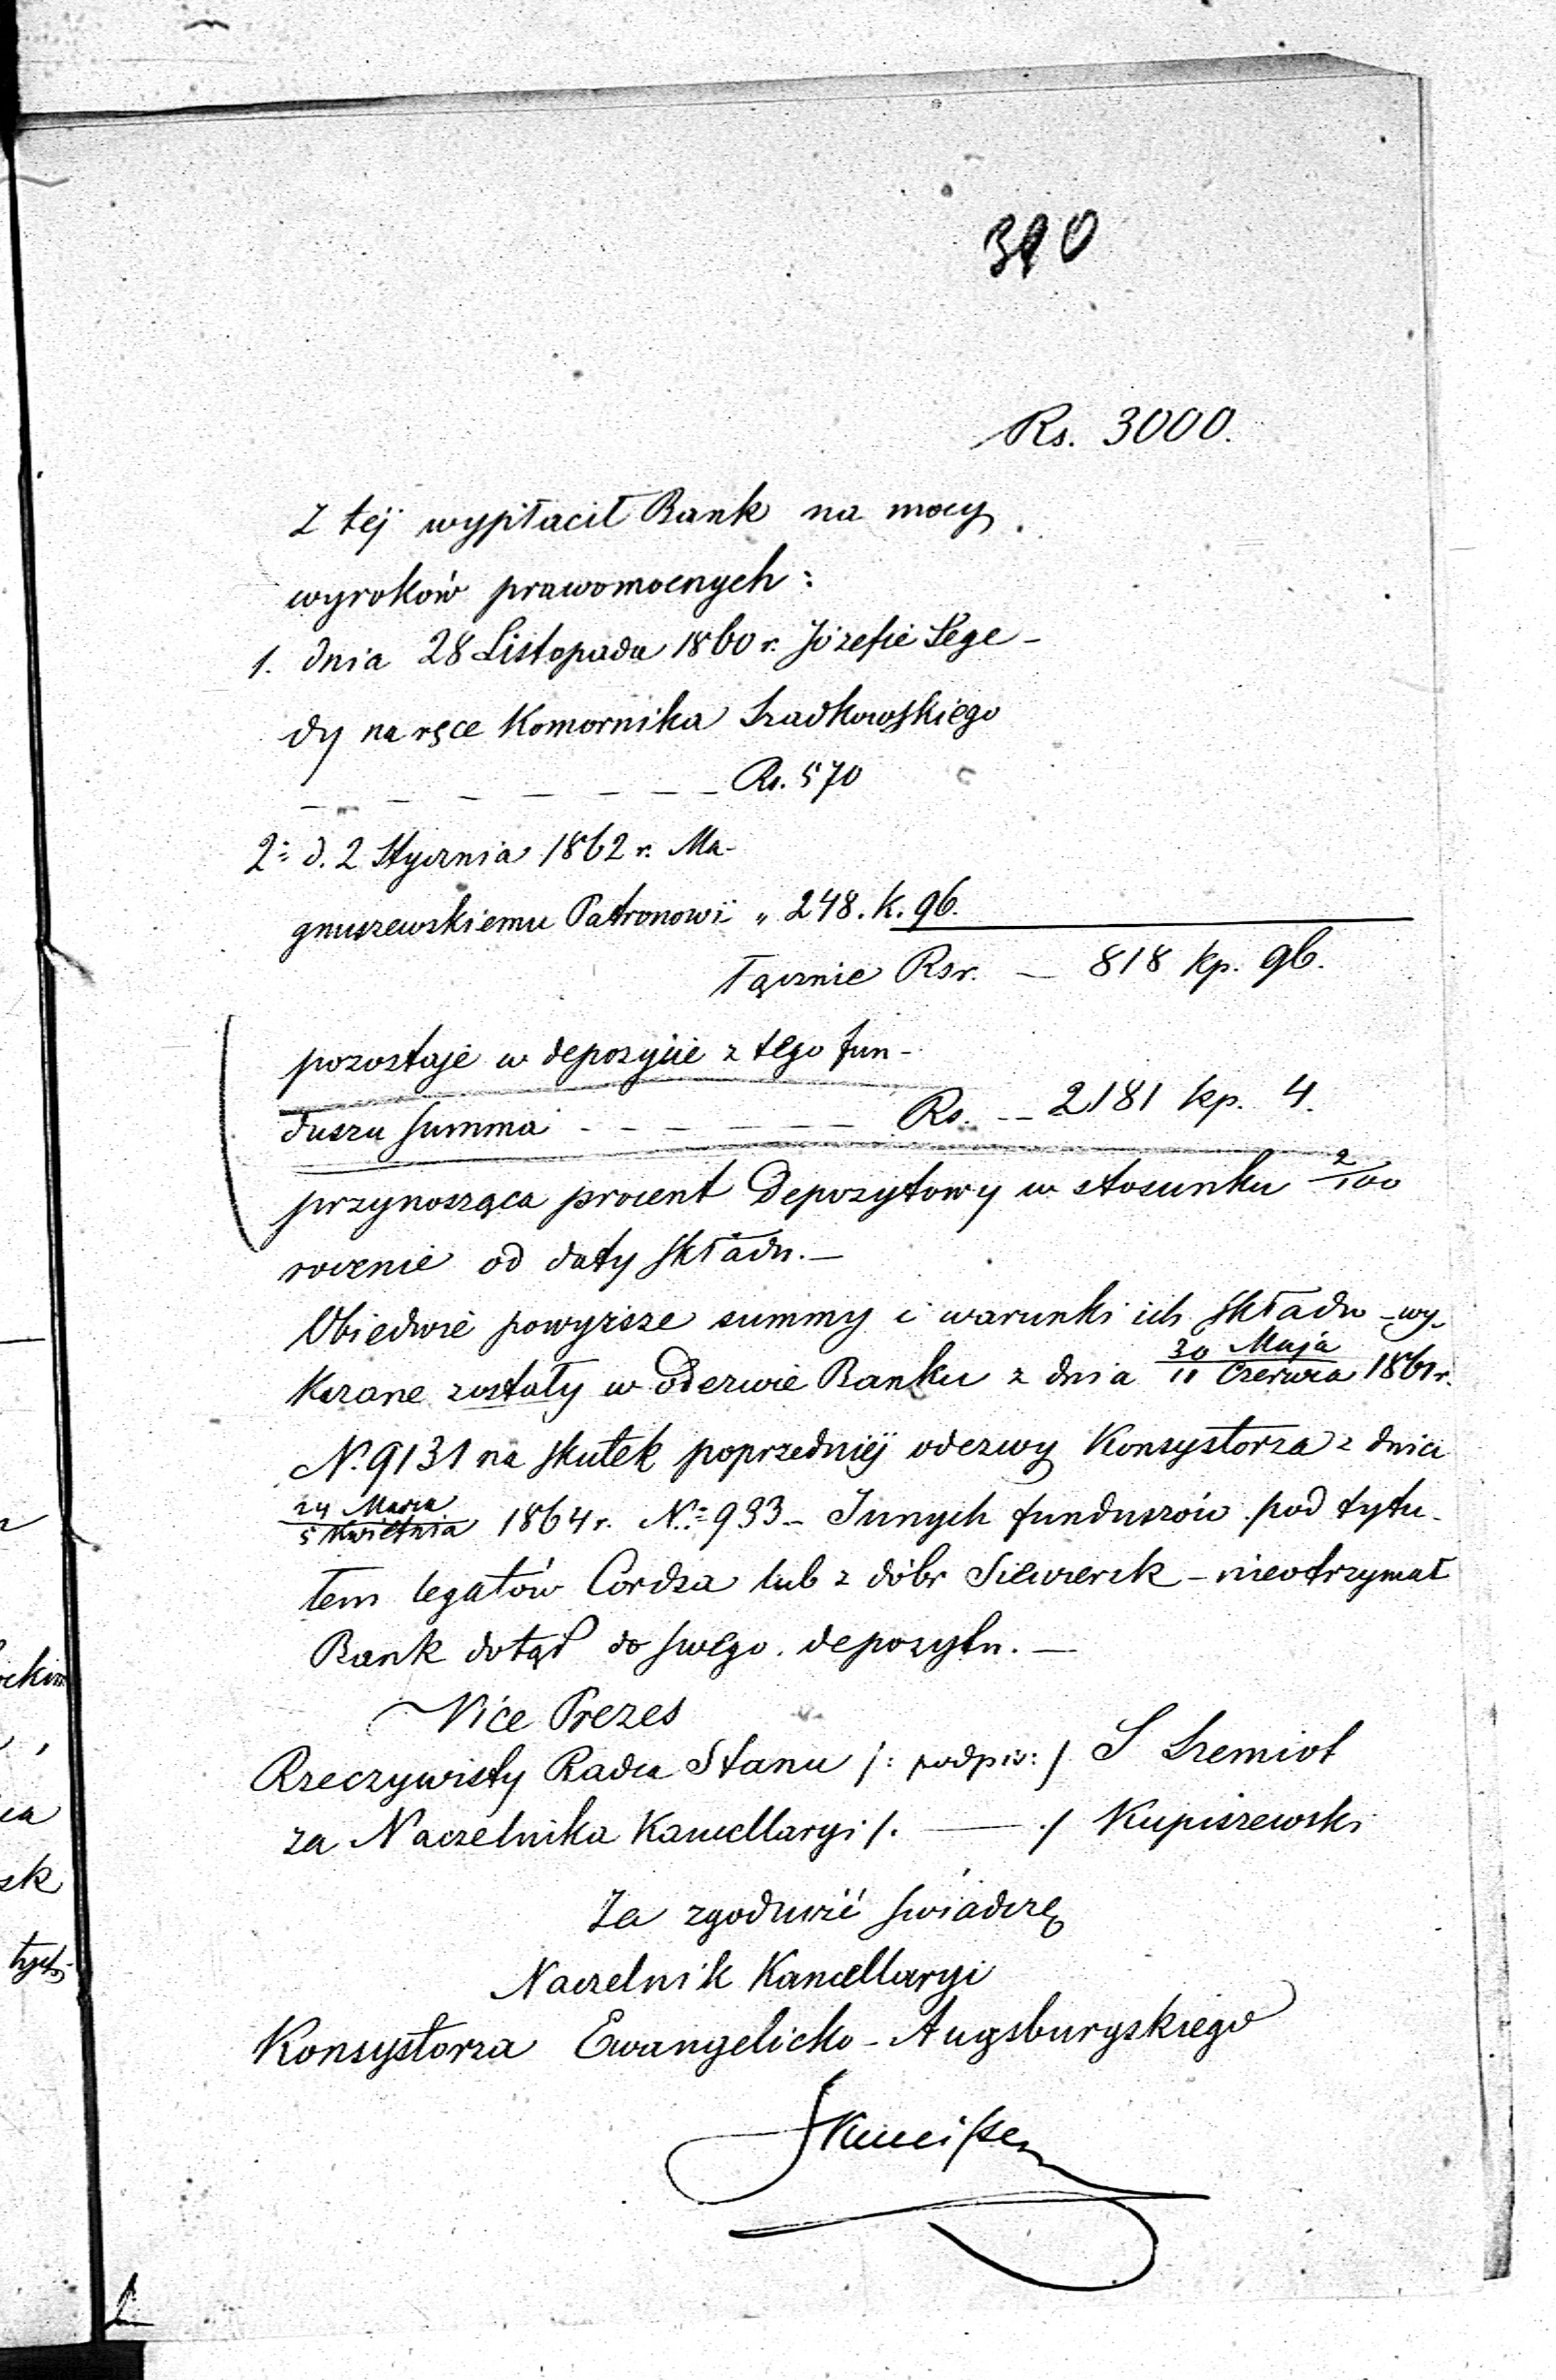 390
Rs. 3000.
Z tej wypłacił Bank na mocy
wyroków prawomocnych:
1. dnia 28 Listopada 1860 r. Józefie Lege-
dy na ręce Komornika Szadkowskiego
_ _ _ _ _ _ _ Rs. 570
2: d. 2 Stycznia 1862 r. Ma-
gnuszewskiemu Patronowi „ 248. K. 96.
łącznie Rsr. — 818 kp. 96.
pozostaje w depozycie z tego fun-
duszu summa - - - - - - Rs. -- 2181 kp. 4.
przynosząca procent Depozytowy w stosunku 2/100
rocznie od daty składu.—
Obiedwie powyższe summy i warunki ich składu wy-
kazane zostały w Odezwie Banku z dnia 30 Maja/11 Czerwca 1861 r.
N. 9131 na skutek poprzedniej odezwy Konsystorza z dnia
24 Marca/5 Kwietnia 1864 r. N.: 933 - Innych funduszów pod tytu-
łem legatów Cordsa lub z dóbr - nieotrzymał
Bank dotąd do swego depozytu.—
Vice Prezes
Rzeczywisty Radca Stanu /: podpis: / S Szemiot
za Naczelnika Kancellaryi /. — ./ Kupiszewski
Za zgodność świadczę
Naczelnik Kancellaryi
Konsystorza Ewangelicko-Augsburgskiego